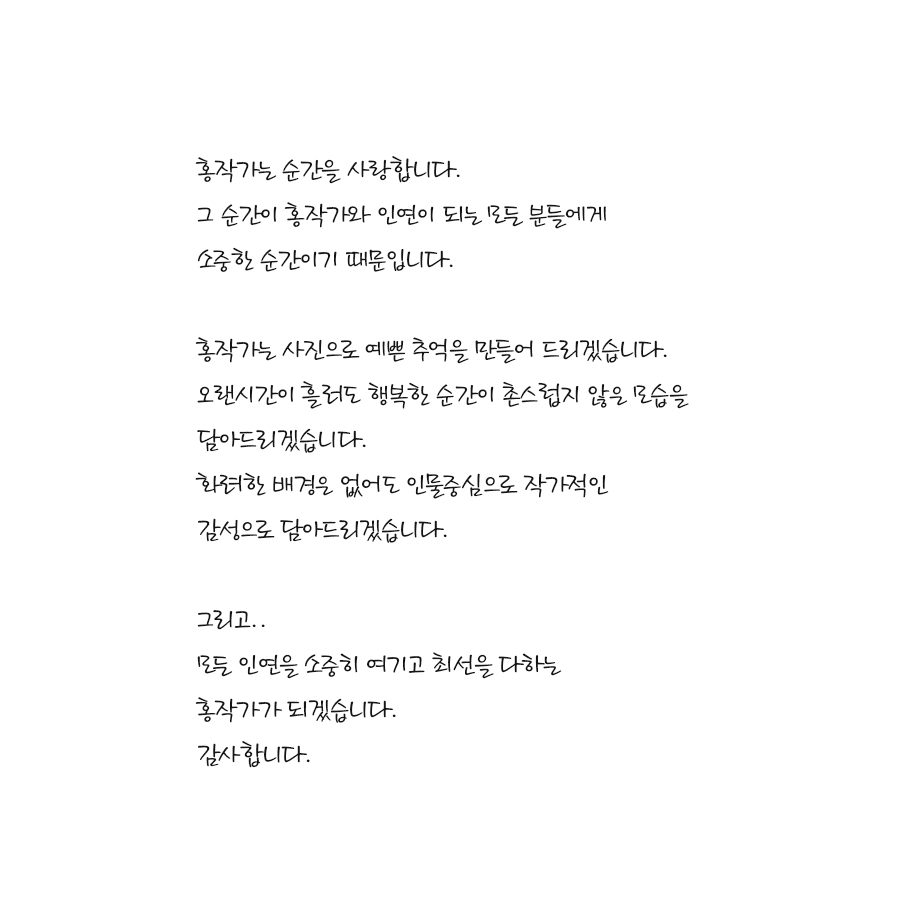 홍작가는 순간을 사랑합니다.
그 순간이 홍작가와 인연이 되는 모든 분들에게
소중한 순간이기 때문입니다.
홍작가는 사진으로 예쁜 추억을 만들어 드리겠습니다.
오랜시간이 흘러도 행복한 순간이 촌스럽지 않은 모습을
담아드리겠습니다.
화려한 배경은 없어도 인물중심으로 작가적인
감성으로 담아드리겠습니다.
그리고..
모든 인연을 소중히 여기고 최선을 다하는
홍작가가 되겠습니다.
감사합니다.